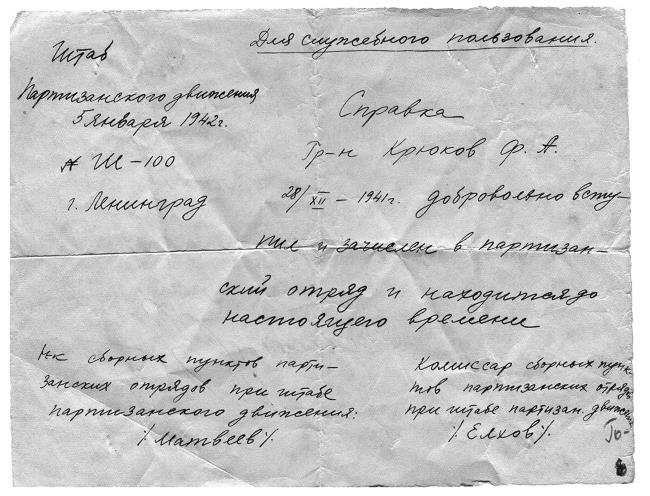 Для служебного пользования.
Штаб
Партизанского движения
5 января 1942г.
№ Ш-100
г. Ленинград
Справка
Гр-н Крюков Ф. А.
28/XII - 1941г. добровольно всту-
пил и зачислен в партизан-
ский отряд и находится до
настоящего времени
Н-к сборных пунктов парти-
занских отрядов при штабе
партизанского движения:
/Матвеев/.
Комиссар сборных пунк-
тов партизанских отрядов
при штабе партизан. движения
/Елхов/.